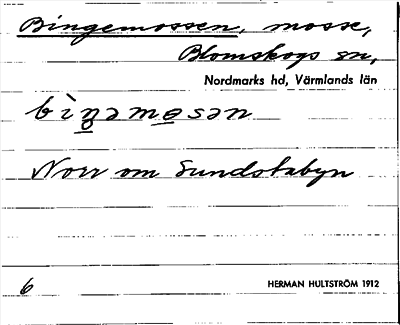 Bingemossen, mosse,
Blomskogs sn,
Nordmarks hd, Värmlands län
bìŋəmɵsən
Norr om Sundstabyn
6 HERMAN HULTSTRÖM 1912